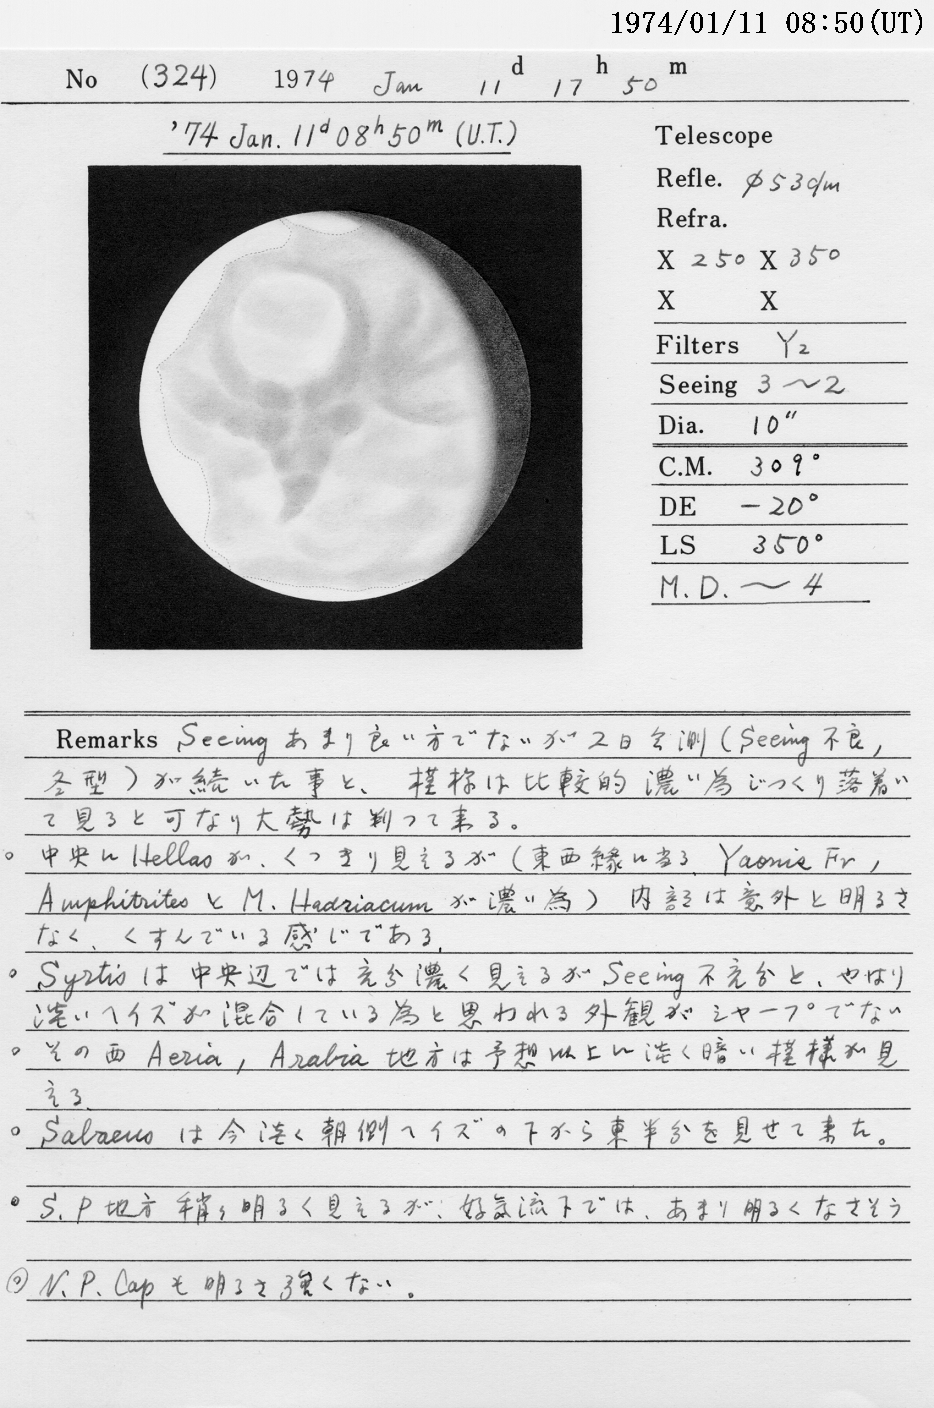 1974/01/11 08:50(UT)
No (324) 1974 Jan 11d 17h 50m
'74 Jan. 11d 08h 50m (U.T.)
Telescope
Refle. φ53cm
Refra.
X 250 X 350
X X
Filters Y2
Seeing 3〜2
Dia. 10"
C.M. 309°
DE −20°
LS 350°
M.D. 〜 4
Remarks Seeing あまり良い方でないが2日会測(Seeing不良,
冬型)が続いた事と、模様は比較的濃い為じっくり落着い
て見ると可なり大勢は判って来る。
○ 中央に Hellas が、くっきり見えるが(東西縁に当る Yaonis Fr,
Amphitrites と M. Hadriacum が濃い為) 内部は意外と明るさ
なく、くすんでいる感じである。
○ Syrtis は中央辺では充分濃く見えるがSeeing不充分と、やはり
淡いヘイズが混合している為と思われる外観がシャープでない
○ その西 Aeria, Arabia 地方は予想以上に淡く暗い模様が見
える.
○ Sabaeus は今淡く朝側ヘイズの下から東半分を見せて来た。
○ S.P地方 稍々明るく見えるが、好気流下では、あまり明るくなさそう
◎ N.P. Cap も明るさ強くない。